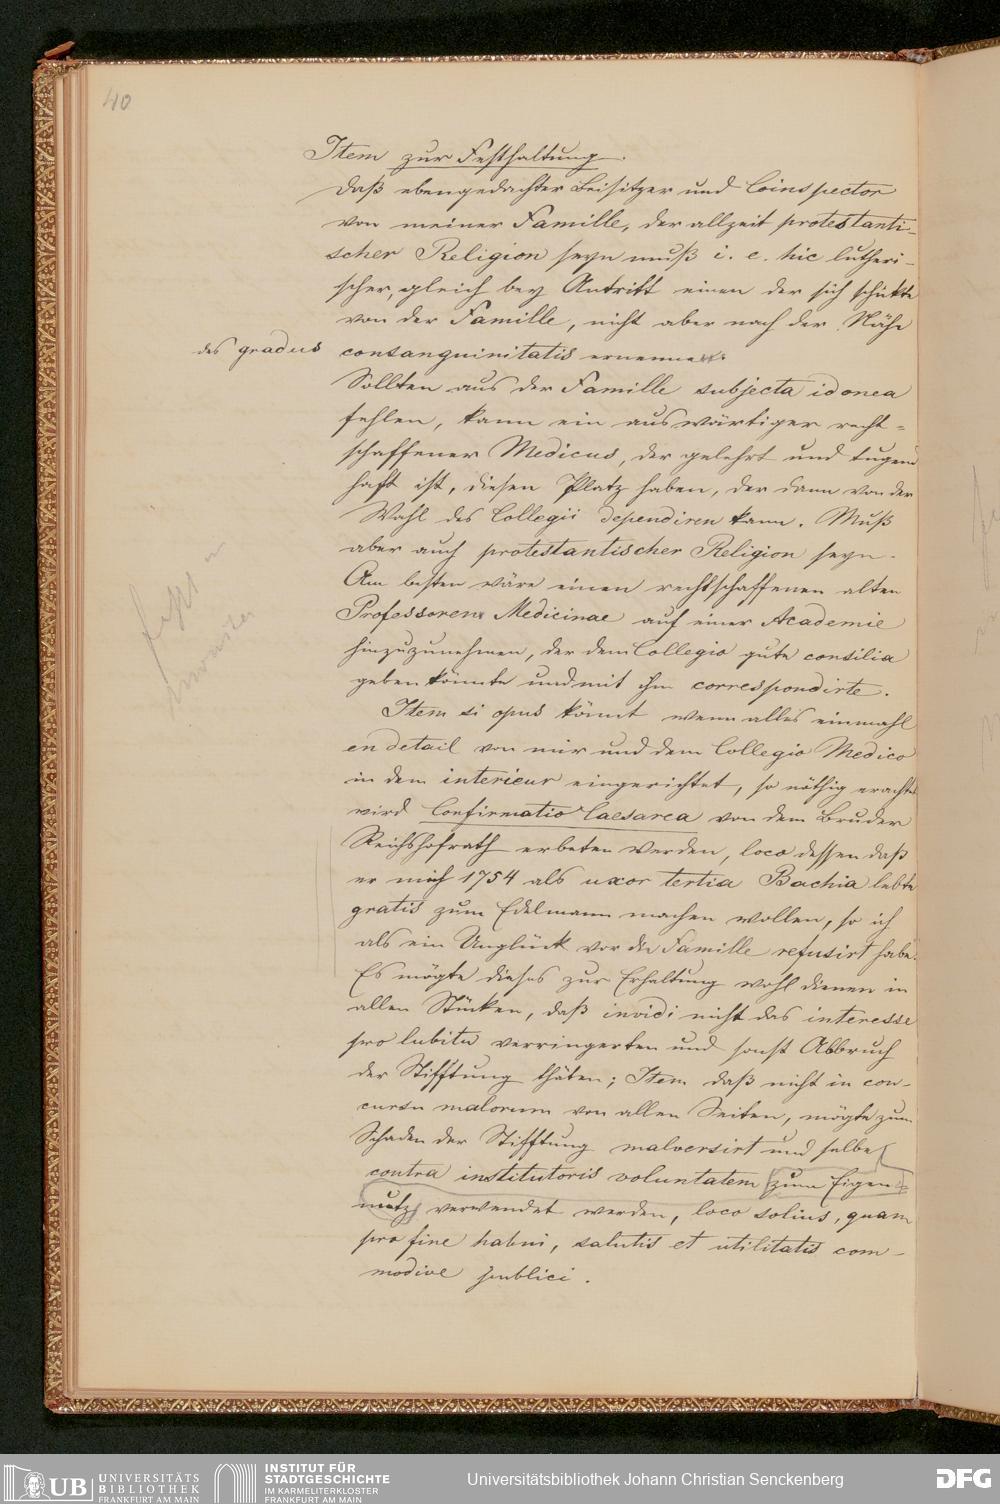 40
Item zur Festhaltung.
daß ebengedachter Beisitzer und Coinspector
von meiner Famille, der allzeit protestanti-
scher Religion seyn muß i. e. hic lutheri-
scher, gleich bey Antritt einen der sich schickte
von der Famille, nicht aber nach der Nähe
des gradus consanguinitatis ernenne.
Sollten aus der Famille subjecta idonea
fehlen, kann ein auswärtiger recht-
schaffener Medicus, der gelehrt und tugend
haft ist, diesen Platz haben, der dann von der
Wahl des Collegii dependiren kann. Muß
aber auch protestantischer Religion seyn.
Am besten wäre einen rechtschaffenen alten
Professoren Medicinae auf einer Academie
hinzuzunehmen, der dem Collegio gute consilia
geben könnte und mit ihm correspondirte.
Item si opus könnt wenn alles einmahl
en detail von mir und dem Collegio Medico
in dem interieur eingerichtet, so nöthig erachtet
wird Confirmatio Caesarea von dem Bruder
Reichshofrath erbeten werden, loco dessen daß
er mich 1754 als uxor tertia Bachia lebte
gratis zum Edelmann machen wollen, so ich
als ein Unglück vor die Famille refusirt habe.
Es mögte dieses zur Erhaltung wohl dienen in
allen Stücken, daß invidi nicht das interesse
pro lubitu verringerten und sonst Abbruch
der Stifftung thäten; Item daß nicht in con-
cursu malorum von allen Seiten, mögte zum
Schaden der Stifftung malversirt und selbe
contra institutoris voluntatem zum Eigen-
nutz verwendet werden, loco solius, quam
pro fine habui, salutis et utilitatis com-
modive publici.
UB UNIVERSITÄTS
BIBLIOTHEK
FRANKFURT AM MAIN
INSTITUT FÜR
STADTGESCHICHTE
IM KARMELITERKLOSTER
FRANKFURT AM MAIN
Universitätsbibliothek Johann Christian Senckenberg
DFG